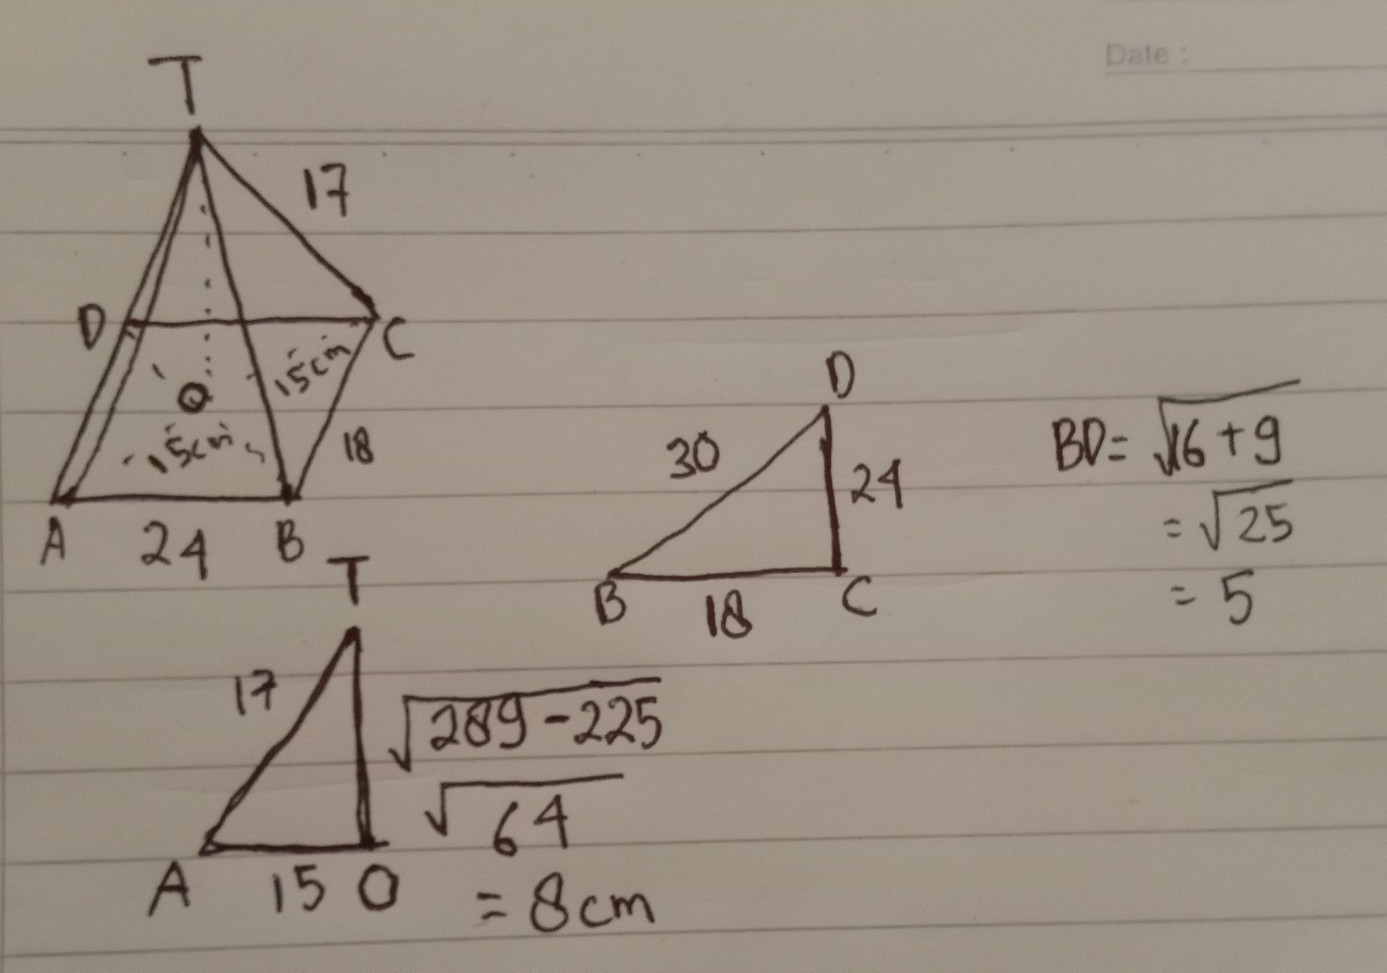 Date :
T
17
D
C
15cm
O
15cm
18
A 24 B
D
30
24
B 18 C
BD= √16 + 9
= √25
= 5
T
17
√289-225
√64
A 15 O
= 8cm